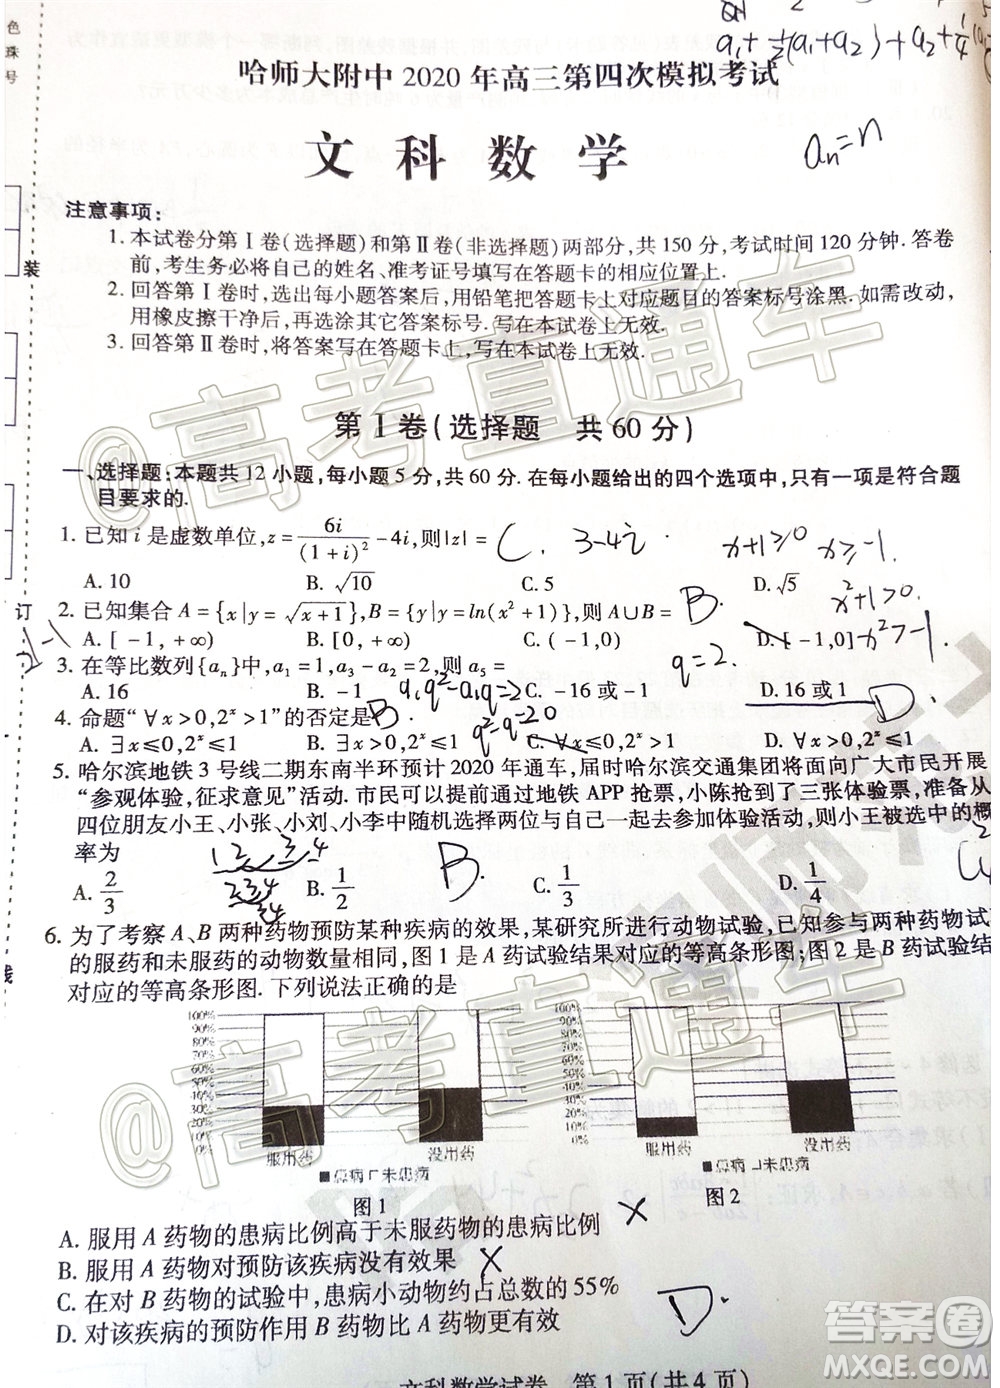 色
珠
号
a₁+½(a₁+a₂)+a₂+¼(
哈师大附中 2020 年高三第四次模拟考试
文 科 数 学
aₙ=n
注意事项：
1. 本试卷分第Ⅰ卷(选择题)和第Ⅱ卷(非选择题)两部分,共 150 分,考试时间 120 分钟. 答卷
前,考生务必将自己的姓名、准考证号填写在答题卡的相应位置上.
装
2. 回答第Ⅰ卷时,选出每小题答案后,用铅笔把答题卡上对应题目的答案标号涂黑. 如需改动,
用橡皮擦干净后,再选涂其它答案标号. 写在本试卷上无效.
3. 回答第Ⅱ卷时,将答案写在答题卡上,写在本试卷上无效.
@高考直通车
第Ⅰ卷(选择题 共 60 分)
一、选择题：本题共 12 小题,每小题 5 分,共 60 分. 在每小题给出的四个选项中,只有一项是符合题
目要求的.
1. 已知 i 是虚数单位,z = 6i/(1+i)² - 4i,则|z| = C. 3-4i x+1≥0 x≥-1.
A. 10 B. √10 C. 5 D. √5
x²+1>0.
订
2. 已知集合 A = {x|y = √(x+1)},B = {y|y = ln(x²+1)},则 A∪B = B.
A. [-1,+∞) B. [0,+∞) C. (-1,0) D. [-1,0] x²>-1
3. 在等比数列{aₙ}中,a₁ = 1,a₃ - a₂ = 2,则 a₅ = q=2.
A. 16 B. -1 C. -16 或 -1 D. 16 或 1 D.
a₁q²-a₁q=2
4. 命题“∀x>0,2ˣ>1”的否定是 B. q²-q=20
A. ∃x≤0,2ˣ≤0 B. ∃x>0,2ˣ≤1 C. ∀x≤0,2ˣ>1 D. ∀x>0,2ˣ≤1
5. 哈尔滨地铁 3 号线二期东南半环预计 2020 年通车,届时哈尔滨交通集团将面向广大市民开展
“参观体验,征求意见”活动. 市民可以提前通过地铁 APP 抢票,小陈抢到了三张体验票,准备从
四位朋友小王、小张、小刘、小李中随机选择两位与自己一起去参加体验活动,则小王被选中的概
率为 12 34 B.
A. 2/3 B. 1/2 C. 1/3 D. 1/4
23,4
34
6. 为了考察 A、B 两种药物预防某种疾病的效果,某研究所进行动物试验,已知参与两种药物试
的服药和未服药的动物数量相同,图 1 是 A 药试验结果对应的等高条形图;图 2 是 B 药试验结
线
对应的等高条形图. 下列说法正确的是
100%
90%
80%
70%
60%
50%
40%
30%
20%
10%
0%
服用药 没用药
■患病□未患病
图 1
100%
90%
80%
70%
60%
50%
40%
30%
20%
10%
0%
服用药 没用药
■患病□未患病
图 2
@高考直通车
A. 服用 A 药物的患病比例高于未服药物的患病比例 ×
B. 服用 A 药物对预防该疾病没有效果 ×
C. 在对 B 药物的试验中,患病小动物约占总数的 55%
D. 对该疾病的预防作用 B 药物比 A 药物更有效
D.
文科数学试卷 第 1 页(共 4 页)
答案圈
MXQE.COM